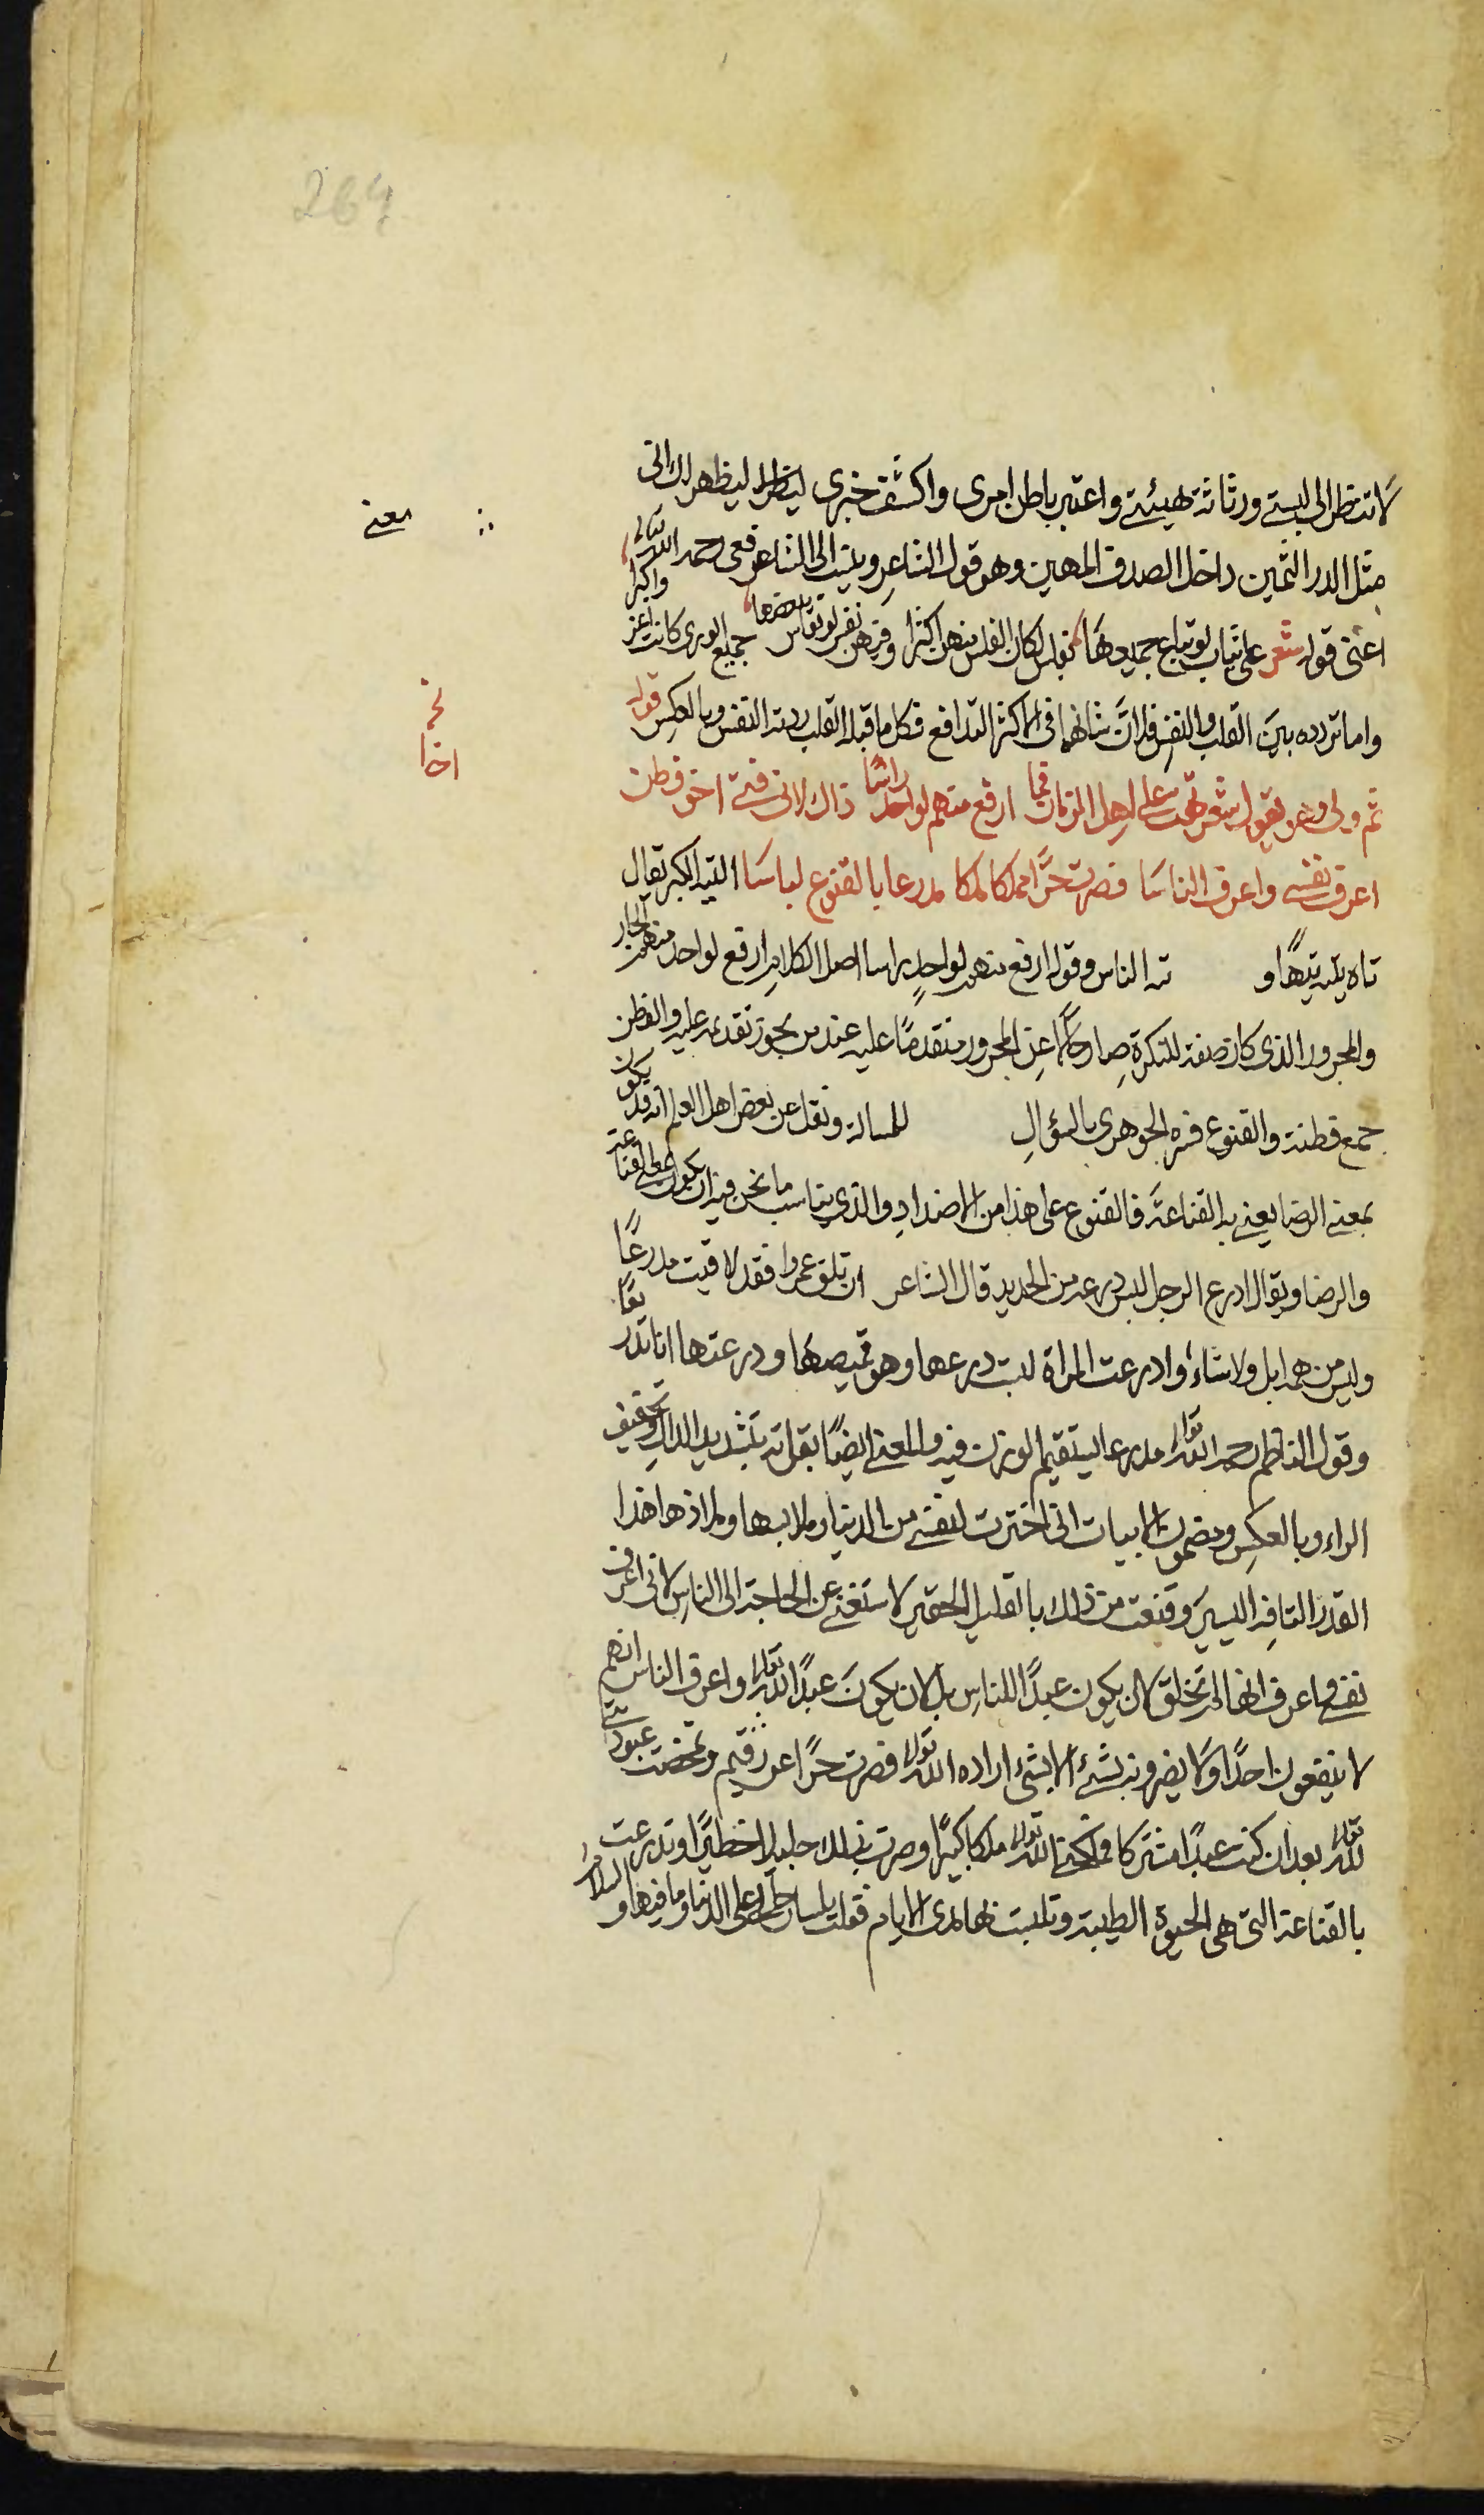 264
لا تنظر الى لبستي ورثاثة هيئتي واعتبر باطن امري واكشف خبري لينظر ليظهر لك اني
معنى
مثل الدر الثمين داخل الصدف المهين وهو قول الشاعر وينسب الى الشافعي رحمه الله تعالى
اعني قوله شعر علي ثياب لو تباع جميعها بفلس لكان الفلس منهن اكثرا وفيهن نفس لو تقاس ببعضها جميع الورى كانت اعز واكبرا
واما تردده بين القلب والنفس فلان شانهما في الاكثر التدافع فكل ما قبله القلب ردته النفس وبالعكس قوله
ثم ولى وهو يقول شعر تهت على اهل الزمان فما ارفع منهم لواحد راسا ذاك لاني فتى اخو فطن
اعرف نفسي واعرف الناسا فصرت حرا مملكا ملكا مدرعا بالقنوع لباسا التيه الكبر يقال
تاه يتيه تيها و ته الناس وقوله ارفع منهم لواحد راسا اصل الكلام ارفع لواحد منهم الجار
والمجرور الذي كان صفة للنكرة صار حالا عن المجرور متقدما عليه عند من يجوز تقديمه عليه والفطن
جمع فطنة والقنوع فسره الجوهري بالسؤال للمسالة ونقل عن بعض اهل العلم انه قد يكون
بمعنى الرضا يعني به القناعة فالقنوع على هذا من الاضداد والذي يناسب ما نحن فيه ان يكون بمعنى القناعة
والرضا ويقال ادرع الرجل لبس درعه من الحديد قال الشاعر ان تلق عمروا فقد لاقيت مدرعا
وليس من همه ابل ولا شاء وادرعت المراة لبست درعها وهو قميصها ودرعتها انا تدريعا
وقول الناظم رحمه الله تعالى مدرعا يستقيم الوزن فيه والمعنى ايضا بقراته بتشديد الدال وتخفيف
الراء وبالعكس ومضمون الابيات اني اخترت لنفسي من الدنيا وملابسها وملاذها هذا
القدر التافه اليسير وقنعت من ذلك بالقليل الحقير لاستغني عن الحاجة الى الناس لاني اعرف
نفسي واعرف انها لم تخلق لان يكون عبدا للناس بل لان يكون عبدا لله تعالى واعرف الناس انهم
لا ينفعون احدا ولا يضرونه بشيء الا بشيء اراده الله تعالى فصرت حرا عن رقهم وتمحضت عبوديتي
لله تعالى بعد ان كنت عبدا مشتركا فملكني الله تعالى ملكا كبيرا وصرت بذلك جليلا خطيرا وتدرعت
بالقناعة التي هي الحيوة الطيبة وتلبست بها مدى الايام فقلت بلسان حالي على الدنيا وما فيها السلام